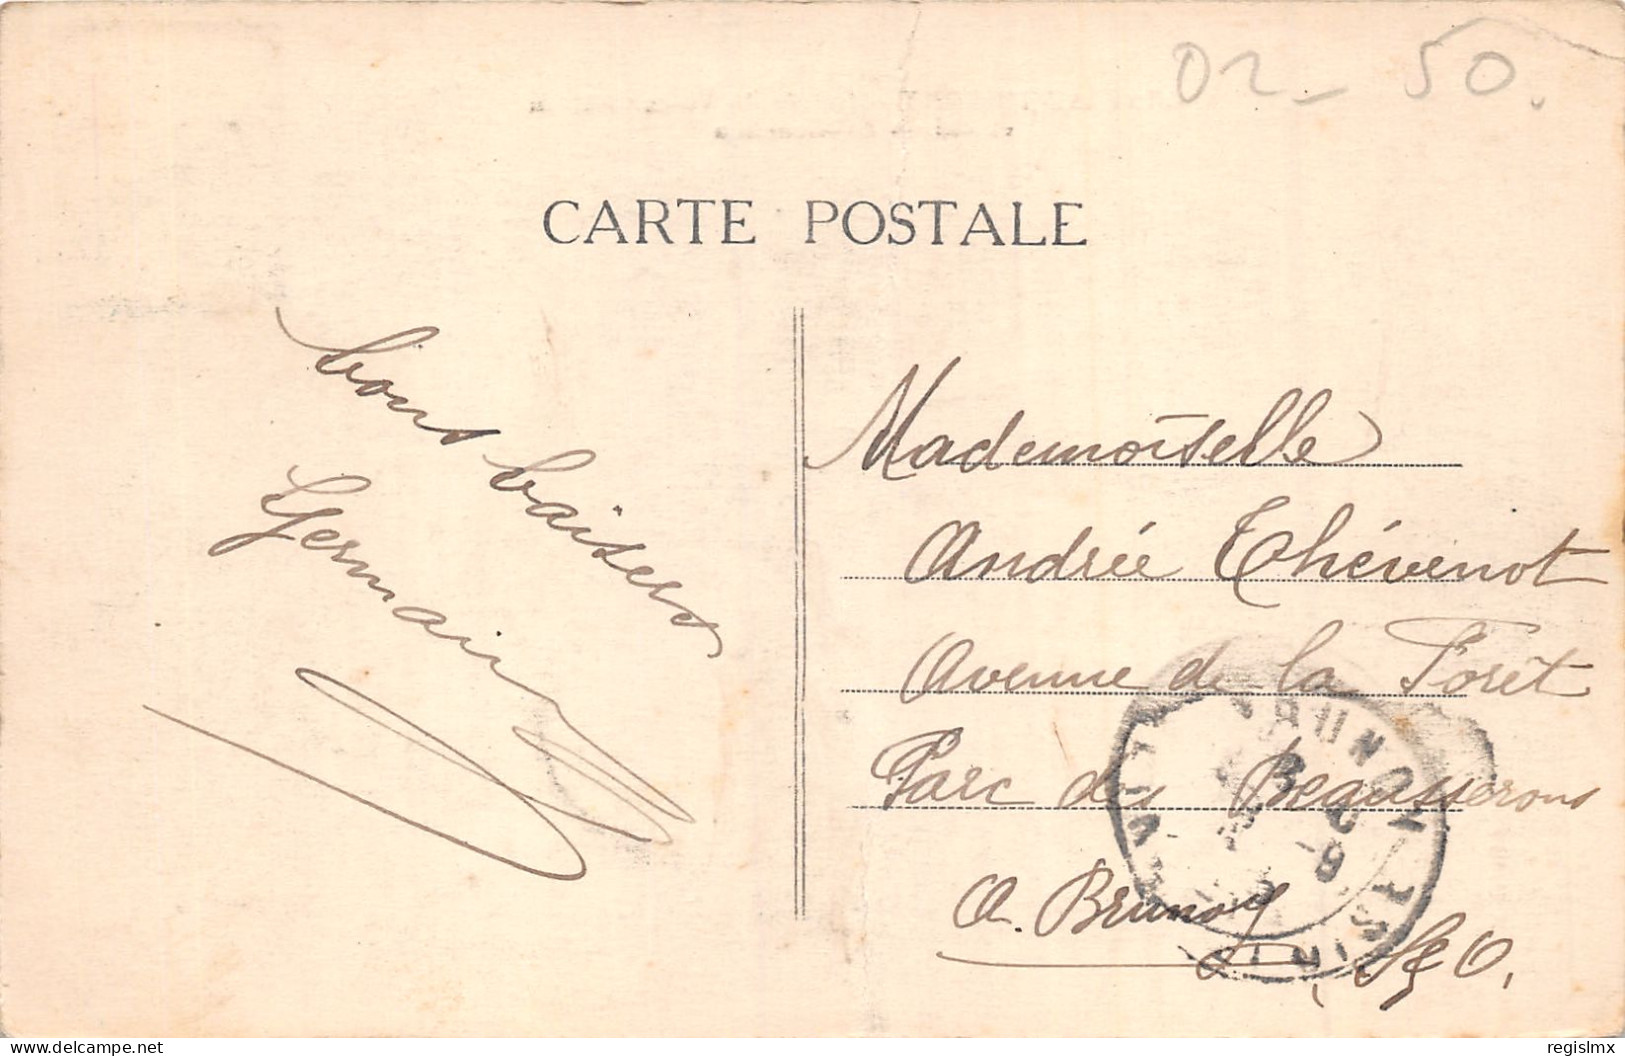 02 - 50.
CARTE POSTALE
bons baisers
Germaine
Mademoiselle
Andrée Thévenot
Avenue de la Forêt
Parc des Beausserons
A. Brunoy
S & O.
BRUNOY
delcampe.net
regislmx